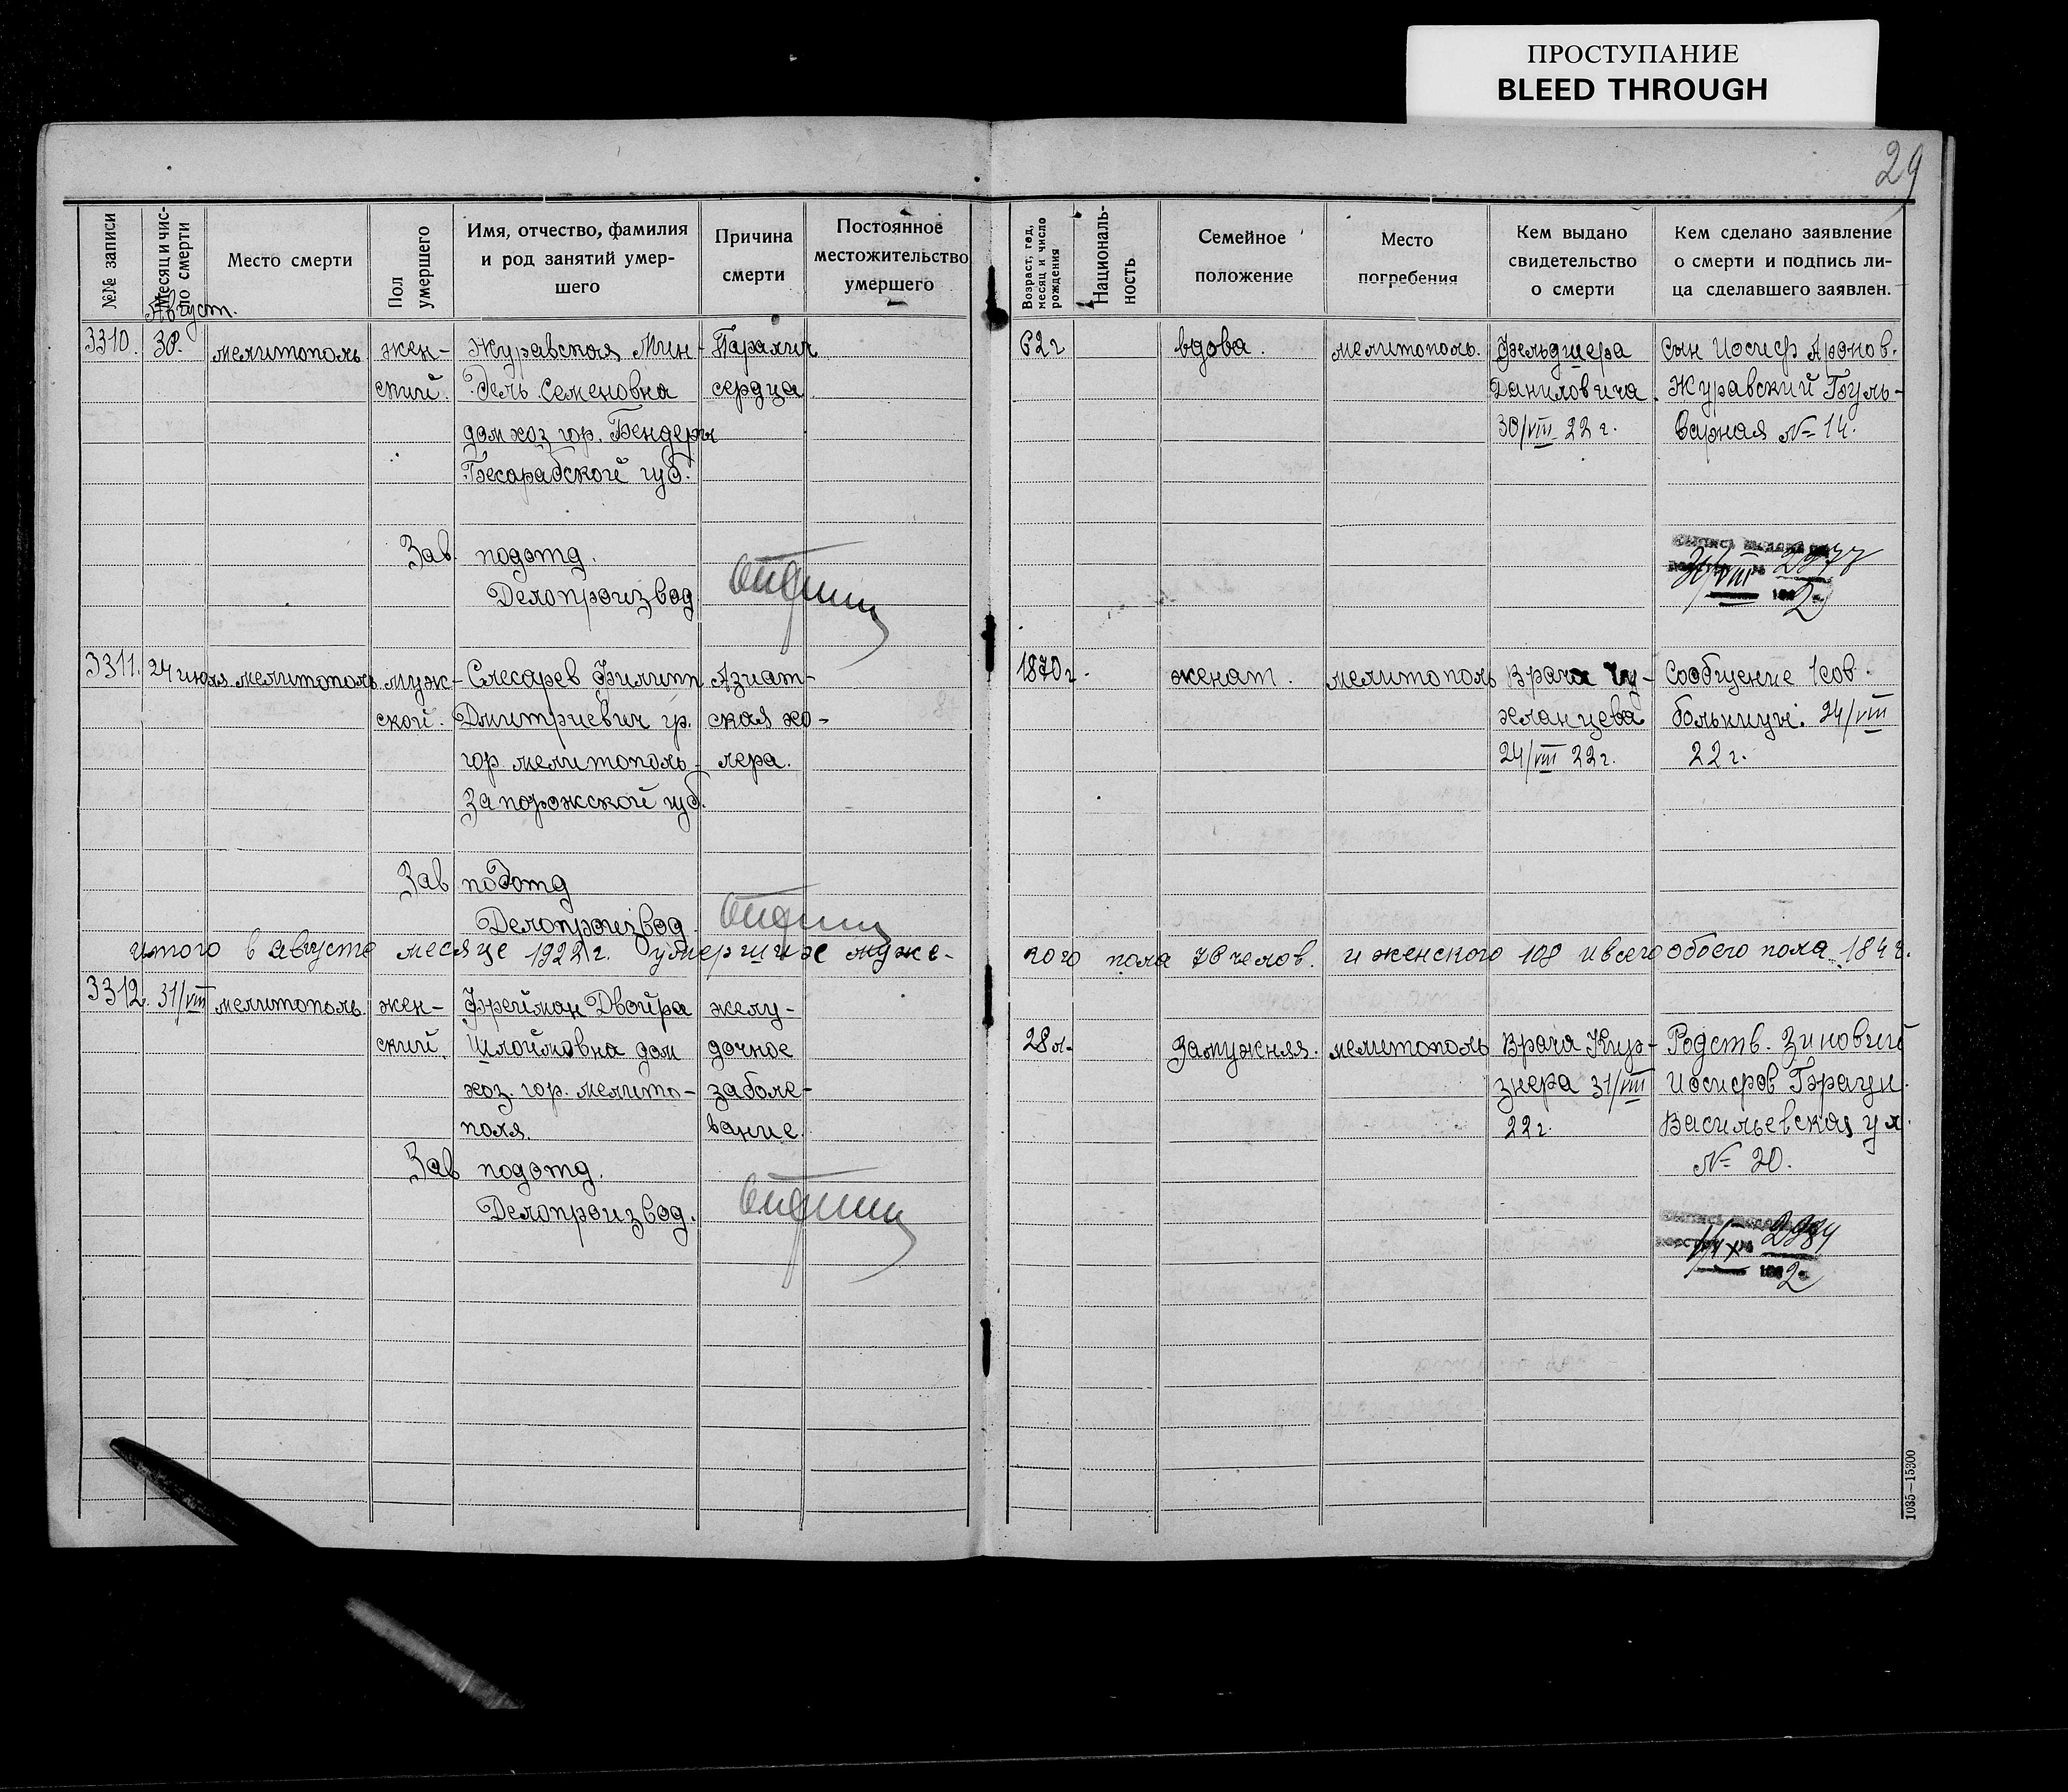 ПРОСТУПАНИЕ
BLEED THROUGH
29
№№ записи
Месяц и число смерти
Место смерти
Пол умершего
Имя, отчество, фамилия
и род занятий умер-
шего
Причина
смерти
Постоянное
местожительство
умершего
Возраст, год, месяц и число рождения
Националь-
ность
Семейное
положение
Место
погребения
Кем выдано
свидетельство
о смерти
Кем сделано заявление
о смерти и подпись ли-
ца сделавшего заявлен.
Август.
3310.
30.
мелитополь
жен-
ский.
Журавская Мин-
дель Семеновна
дом хоз гор. Бендеры
Бесарабской губ.
Паралич
сердца
62 г
вдова.
мелитополь.
Фельдшера
Даниловича.
30/VIII 22 г.
Сын Иосиф Аронов.
Журавский Буль-
варная № 14.
Зав. подотд.
Делопроизвод.
2977
3311.
24 июля
мелитополь
муж-
ской.
Слесарев Филипп
Дмитриевич гр.
гор мелитополь
Запорожской губ.
Азиат-
ская хо-
лера.
1870 г.
женат.
мелитополь
Врача
24/VIII 22 г.
Сообщение 1 сов.
больницы. 24/VIII
22 г.
Зав подотд
Делопроизвод.
итого в августе месяце 1922 г. умерших мужс-
кого пола 76 челов. и женского 108 и всего обоего пола 184 ч.
3312.
31/VIII
мелитополь.
жен-
ский.
Фрейман Двойра
Шлоймовна дом
хоз. гор. мелито-
поля.
желу-
дочное
заболе-
вание.
28 л.
Замужняя.
мелитополь
Врача
31/VIII
22 г.
Родств. Зиновий
Иосифов Браун.
Васильевская ул.
№ 20.
Зав подотд.
Делопроизвод.
2984
1035—15300